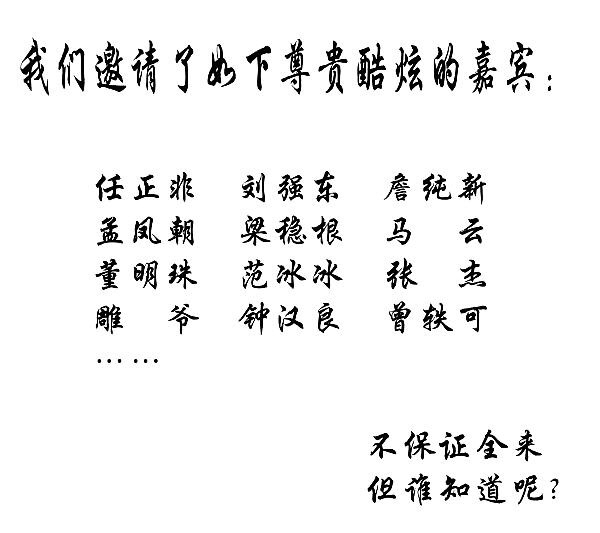 我们邀请了如下尊贵酷炫的嘉宾：
任正非 刘强东 詹纯新
孟凤朝 梁稳根 马云
董明珠 范冰冰 张杰
雕爷 钟汉良 曾轶可
……
不保证全来
但谁知道呢？